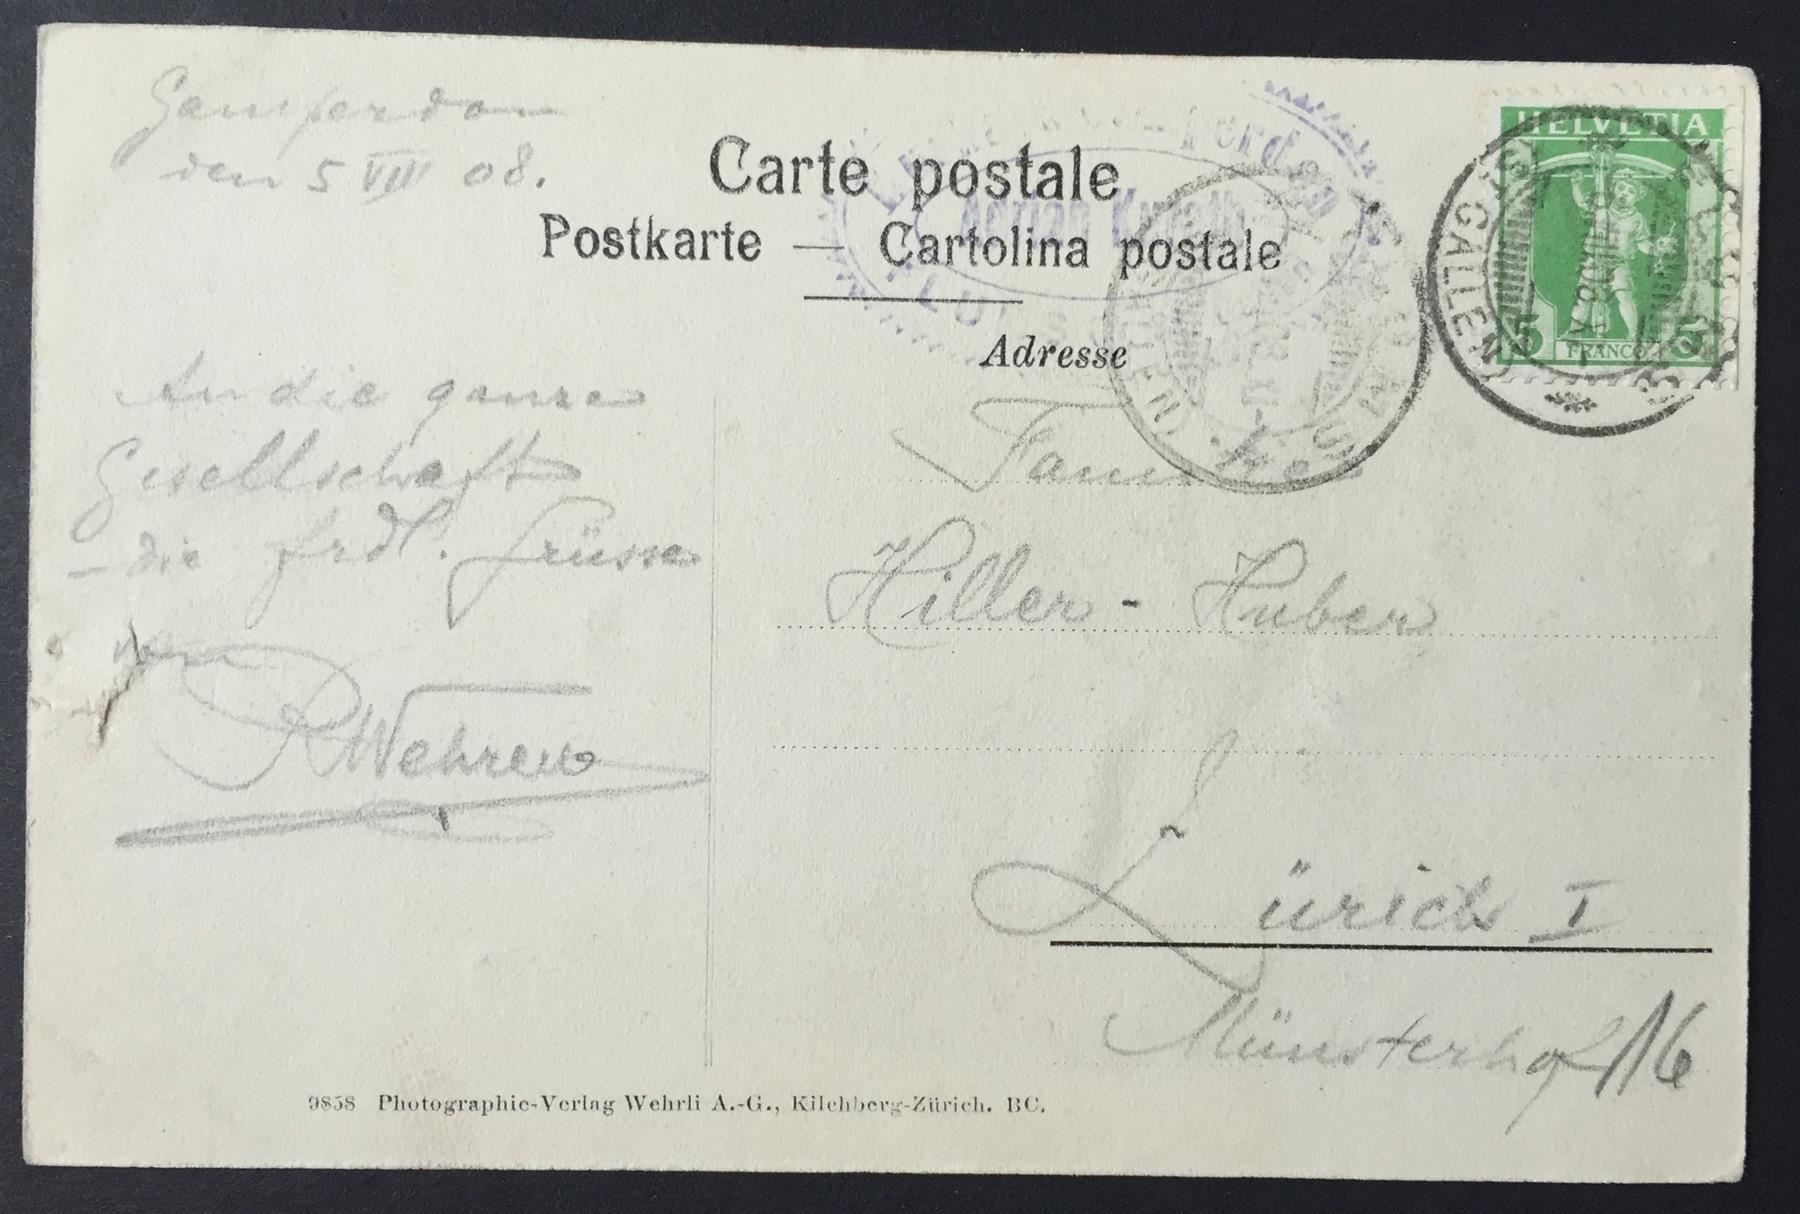 Gamperdon
den 5 VIII 08.
Carte postale
Postkarte — Cartolina postale
Adresse
HELVETIA
5 FRANCO 5
(ST. GALLEN)
FLUMS
Adrian Kurath
An die ganze
Gesellschaft
die frdl. Grüsse
von
Familie
Hiller - Huber
Zürich I
Münsterhof 16
9858 Photographie-Verlag Wehrli A.-G., Kilchberg-Zürich. BC.